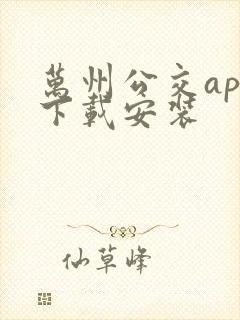 萬州公交ap
下載安裝
仙草峰